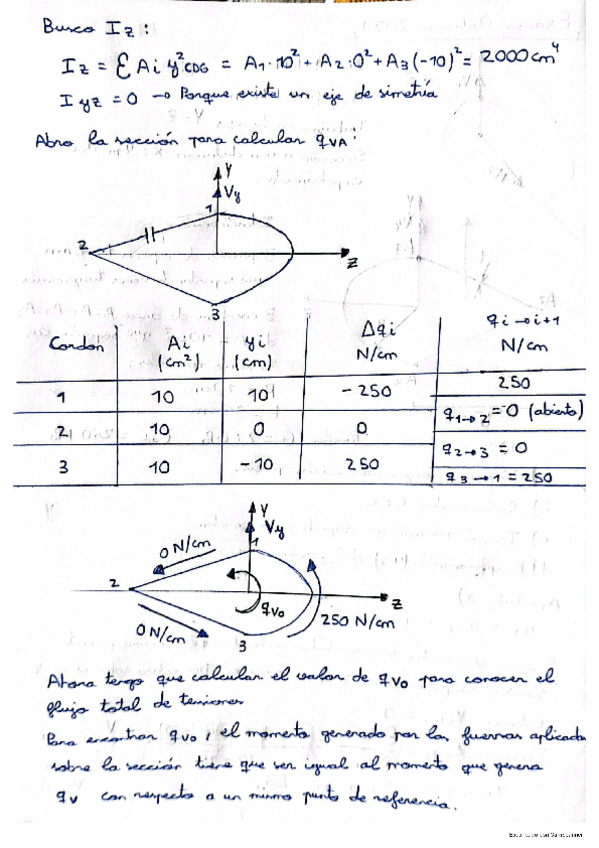 Busco Iz:
Iz = Σ Ai y²CDG = A1·10² + A2·0² + A3(-10)² = 2000 cm⁴
I yz = 0 → Porque existe un eje de simetría
Abro la sección para calcular qVA:
Y
Vy
1
2
Z
3
Cordón Ai (cm²) yi (cm) Δqi N/cm qi→i+1 N/cm
1 10 10 -250 250
q1→2 = 0 (abierto)
2 10 0 0
q2→3 = 0
3 10 -10 250
q3→1 = 250
Y
Vy
0 N/cm
1
2
Z
qVo
250 N/cm
0 N/cm
3
Ahora tengo que calcular el valor de qVo para conocer el
flujo total de tensiones
Para encontrar qVo, el momento generado por las fuerzas aplicada
sobre la sección tiene que ser igual al momento que genera
qV con respecto a un mismo punto de referencia.